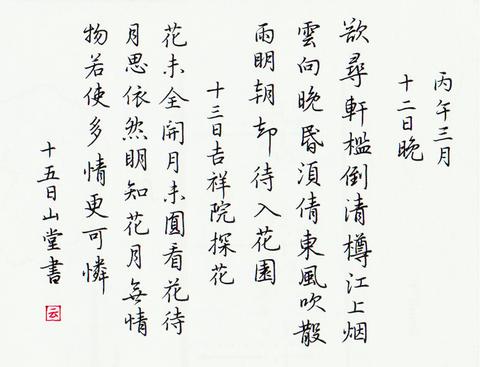 丙午三月
十二日晚
欲尋軒檻倒清樽江上烟
雲向晚昏須倩東風吹散
雨明朝却待入花園
十三日吉祥院探花
花未全開月未圓看花待
月思依然明知花月無情
物若使多情更可憐
十五日山堂書
云